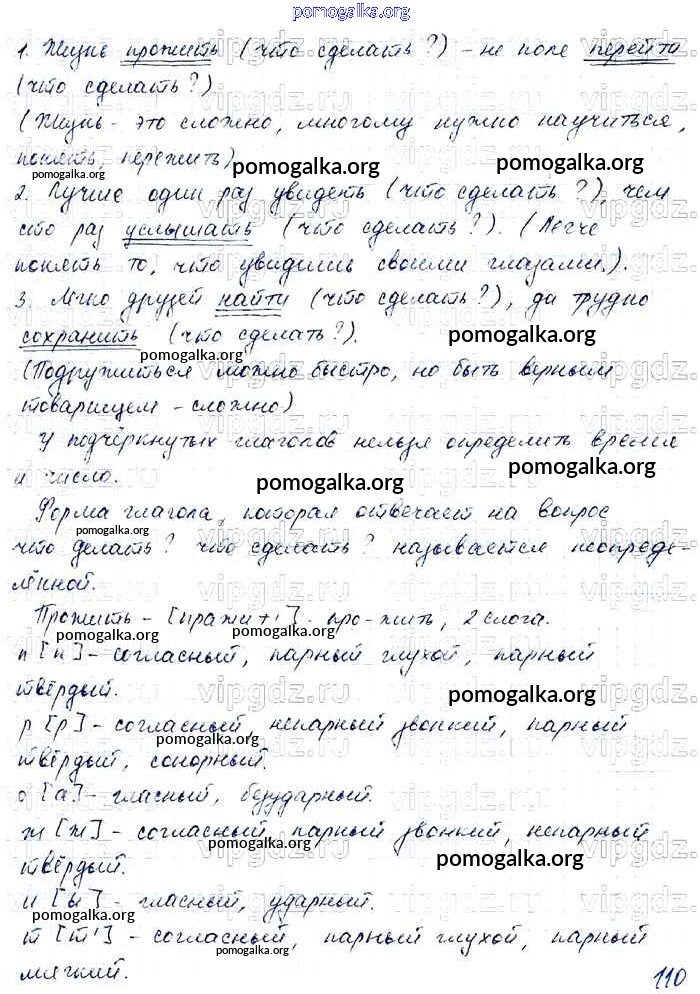 pomogalka.org
1. Жизнь прожить (что сделать?) - не поле перейти
(что сделать?)
(Жизнь - это сложно, многому нужно научиться,
понять, пережить)
pomogalka.org pomogalka.org
2. Лучше один раз увидеть (что сделать?), чем
сто раз услышать (что сделать?). (Легче
понять то, что увидишь своими глазами.).
3. Легко друзей найти (что сделать?), да трудно
сохранить (что сделать?).
pomogalka.org pomogalka.org
(Подружиться можно быстро, но быть верным
товарищем - сложно)
У подчёркнутых глаголов нельзя определить время
и число.
pomogalka.org pomogalka.org
Форма глагола, которая отвечает на вопрос
pomogalka.org
что делать? что сделать? называется неопреде-
лённой.
Прожить - [пражит']. про-жить, 2 слога.
pomogalka.org pomogalka.org
п [п] - согласный, парный глухой, парный
твёрдый.
pomogalka.org
р [р] - согласный, непарный звонкий, парный
pomogalka.org
твёрдый, сонорный.
о [а] - гласный, безударный.
ж [ж] - согласный, парный звонкий, непарный
твёрдый.
pomogalka.org
и [ы] - гласный, ударный.
pomogalka.org
т [т'] - согласный, парный глухой, парный
мягкий.
110
vipgdz.ru